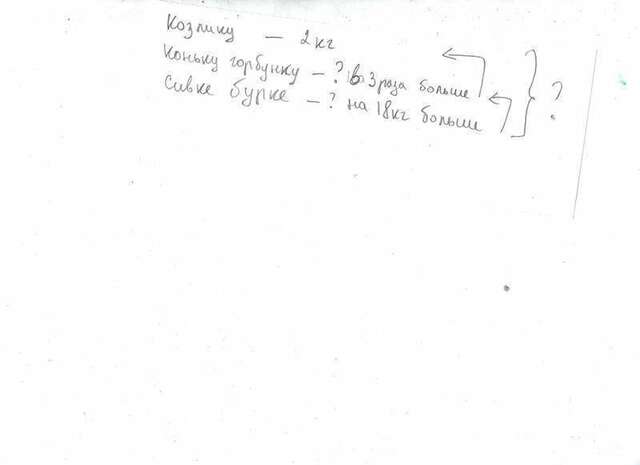 Козлику — 2 кг
Коньку горбунку — ? в 3 раза больше
Сивке бурке — ? на 18 кг больше
?